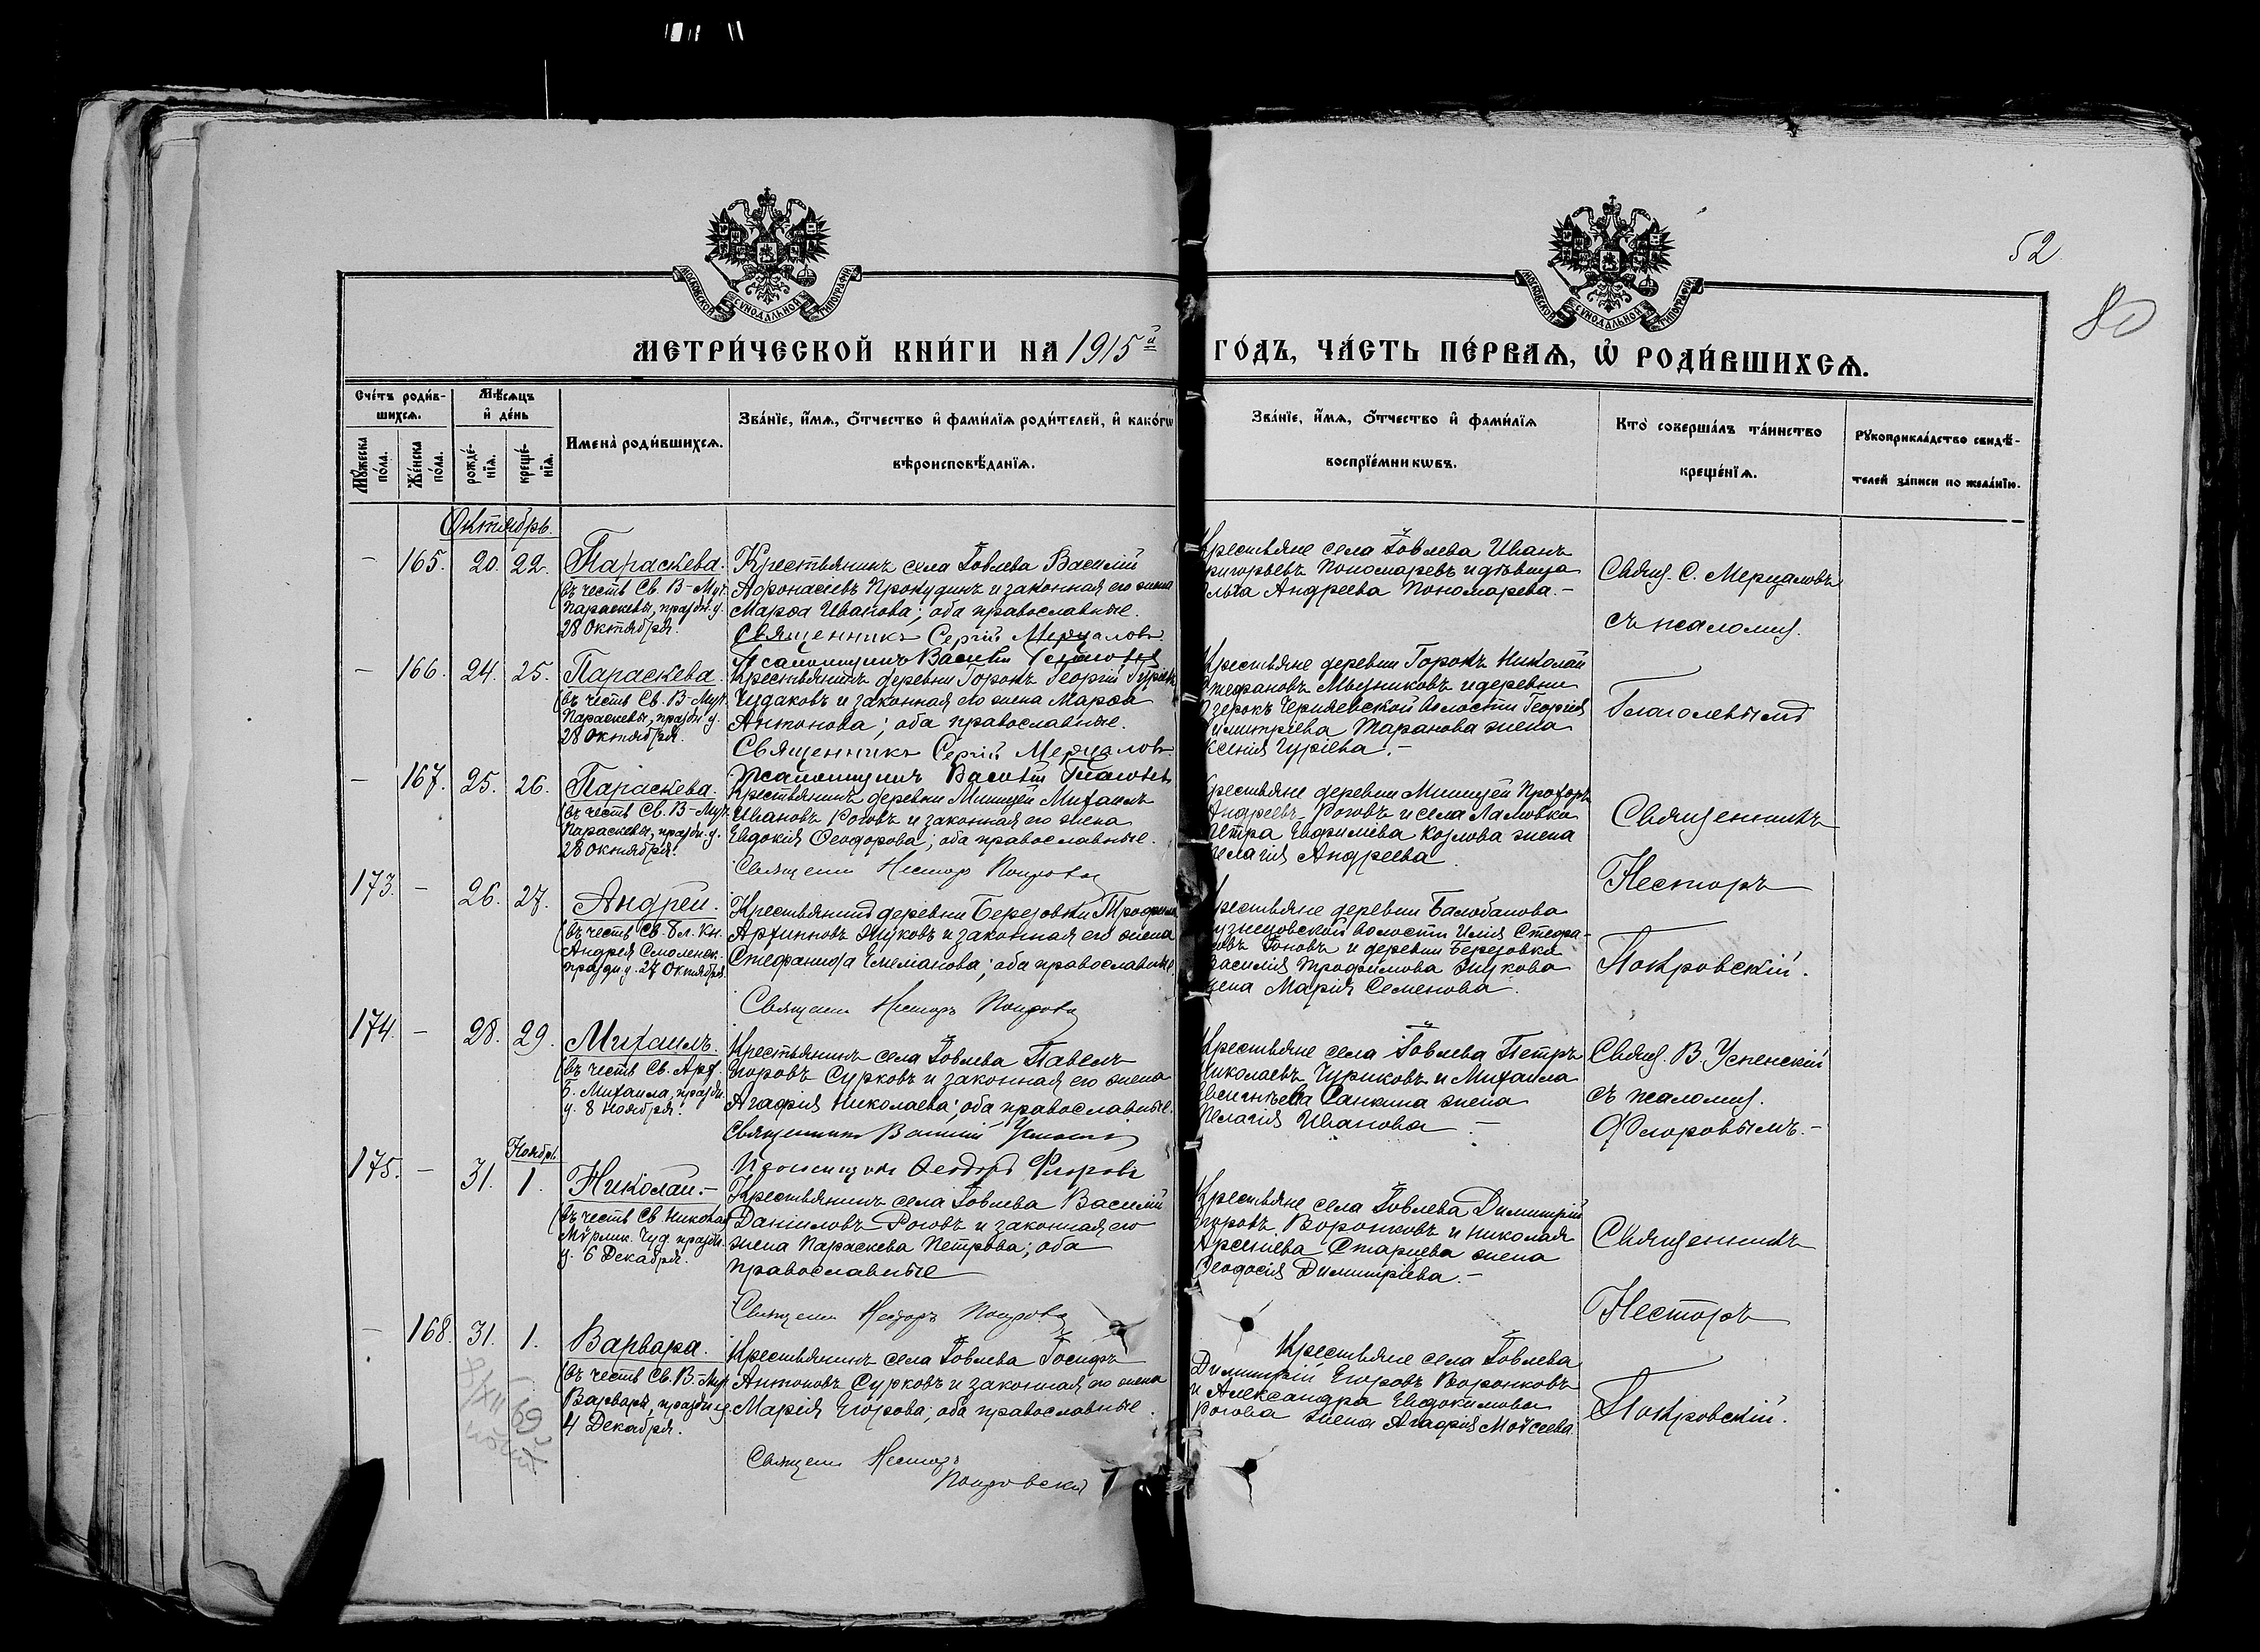 52
80
МЕТРИ́ЧЕСКОЙ КНИ́ГИ НА 1915й ГО́ДЪ, ЧА́СТЬ ПЕ́РВАѦ, Ѡ҆ РОДИ́ВШИХСѦ.
Сче́тъ роди́в-
шихсѧ.
Мꙋ́жеска
по́ла.
Же́нска
по́ла.
Мѣ́сѧцъ
и҆ де́нь
рожде́-
нїѧ.
креще́-
нїѧ.
Имена̀ роди́вшихсѧ.
Зва́нїе, и҆́мѧ, ѻ҆́тчество и҆ фами́лїѧ роди́телей, и҆ како́гѡ
вѣроисповѣ́данїѧ.
Зва́нїе, и҆́мѧ, ѻ҆́тчество и҆ фами́лїѧ
воспрїе́мникѡвъ.
Кто̀ соверша́лъ та́инство
креще́нїѧ.
Рꙋкоприкла́дство свидѣ́-
телей за́писи по жела́нїю.
Октябрь.
— 165. 20. 22. Параскева.
(въ честь Св. В-Муч.
Параскевы, праздн. у.
28 Октября.
Крестьянинъ села Говлева Василій
Афонасіевъ Прокудинъ и законная его жена
Марѳа Иванова; оба православные.
Священникъ Сергій Мерцаловъ
Крестьяне села Говлева Иванъ
Григорьевъ Пономаревъ и дѣвица
Ольга Андреева Пономарева.—
Свящ. С. Мерцаловъ
съ псаломщ.
— 166. 24. 25. Параскева.
(въ честь Св. В-Муч.
Параскевы, праздн. у.
28 Октября.
Псаломщикъ Василій
Крестьянинъ деревни Горокъ Георгій
Чудаковъ и законная его жена Марѳа
Антонова; оба православные.
Священникъ Сергій Мерцаловъ
Псаломщикъ Василій
Крестьяне деревни Горокъ Николай
Стефановъ Мытниковъ и деревни
Озерокъ Черняевской волости Георгія
Димитріева Таранова жена
Ксенія Гуріева.—
Глаголевымъ
— 167. 25. 26. Параскева.
(въ честь Св. В-Муч.
Параскевы, праздн. у.
28 Октября.
Крестьянинъ деревни Мишцей Михаилъ
Ивановъ Роговъ и законная его жена
Евдокія Ѳеодорова; оба православные.
Священ Несторъ Покровск
Крестьяне деревни Мишцей Прохоръ
Андреевъ Роговъ и села Ламовка
Петра Евфиміева Козлова жена
Пелагія Андреева
Священникъ
Несторъ
Покровскій.
173. — 26. 27. Андрей.
(въ честь Св. Бл. Кн.
Андрея Смоленск.
праздн. у. 27 Октября
Крестьянинъ деревни Березовки Трофимъ
Архиповъ Жуковъ и законная его жена
Стефанида Емеліанова; оба православные.
Священ Несторъ Покровск
Крестьяне деревни Балобанова
Кузнецовской волости Илія Стефа-
новъ Боновъ и деревни Березовка
Василія Трофимова Жукова
жена Марія Семенова.
174. — 28. 29. Михаилъ.
(въ честь Св. Арх.
Б. Михаила, праздн.
у. 8 ноября.
Крестьянинъ села Говлева Павелъ
Егоровъ Сурковъ и законная его жена
Агафія Николаева; оба православные.
Священникъ Василій Успенскій
Псаломщикъ Ѳеодоръ Флоровъ
Крестьяне села Говлева Петръ
Николаевъ Чуриковъ и Михаила
Санкина жена
Пелагія Иванова —
Свящ. В. Успенскій
съ псаломщ.
Флоровымъ.—
Ноябрь.
175. — 31. 1. Николай.—
(въ честь Св. Николая
Мѵрлик. Чуд. праздн.
у. 6 Декабря.
Крестьянинъ села Говлева Василій
Даниловъ Роговъ и законная его
жена Параскева Петрова; оба
православные
Священ Несторъ Покровск
Крестьяне села Говлева Димитрій
Егоровъ Воронковъ и Николая
Арсеніева Старцева жена
Ѳеодосія Димитріева.—
Священникъ
Несторъ
Покровскій.
— 168. 31. 1. Варвара.
(въ честь Св. В-Муч.
Варвары, праздн. у.
4 Декабря.
Крестьянинъ села Говлева Іосифъ
Антоновъ Сурковъ и законная его жена
Марія Егорова; оба православные.
Священ Несторъ
Покровскій
Крестьяне села Говлева
Димитрій Егоровъ Воронковъ
и Александра Евдокимова
Рогова жена Агафія Моѵсеева.